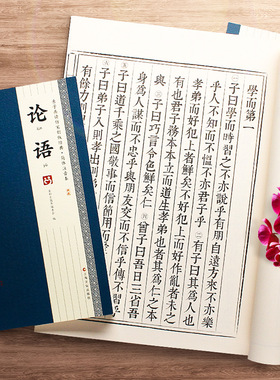 學而第一
子曰學而時習之不亦說乎有朋自遠方來不亦樂
乎人不知而不慍不亦君子乎 有子曰其爲人也
孝弟而好犯上者鮮矣不好犯上而好作亂者未之
有也君子務本本立而道生孝弟也者其爲仁之本
與 子曰巧言令色鮮矣仁 曾子曰吾日三省吾
身爲人謀而不忠乎與朋友交而不信乎傳不習乎
子曰道千乘之國敬事而信節用而
弟子入則孝出則
论语